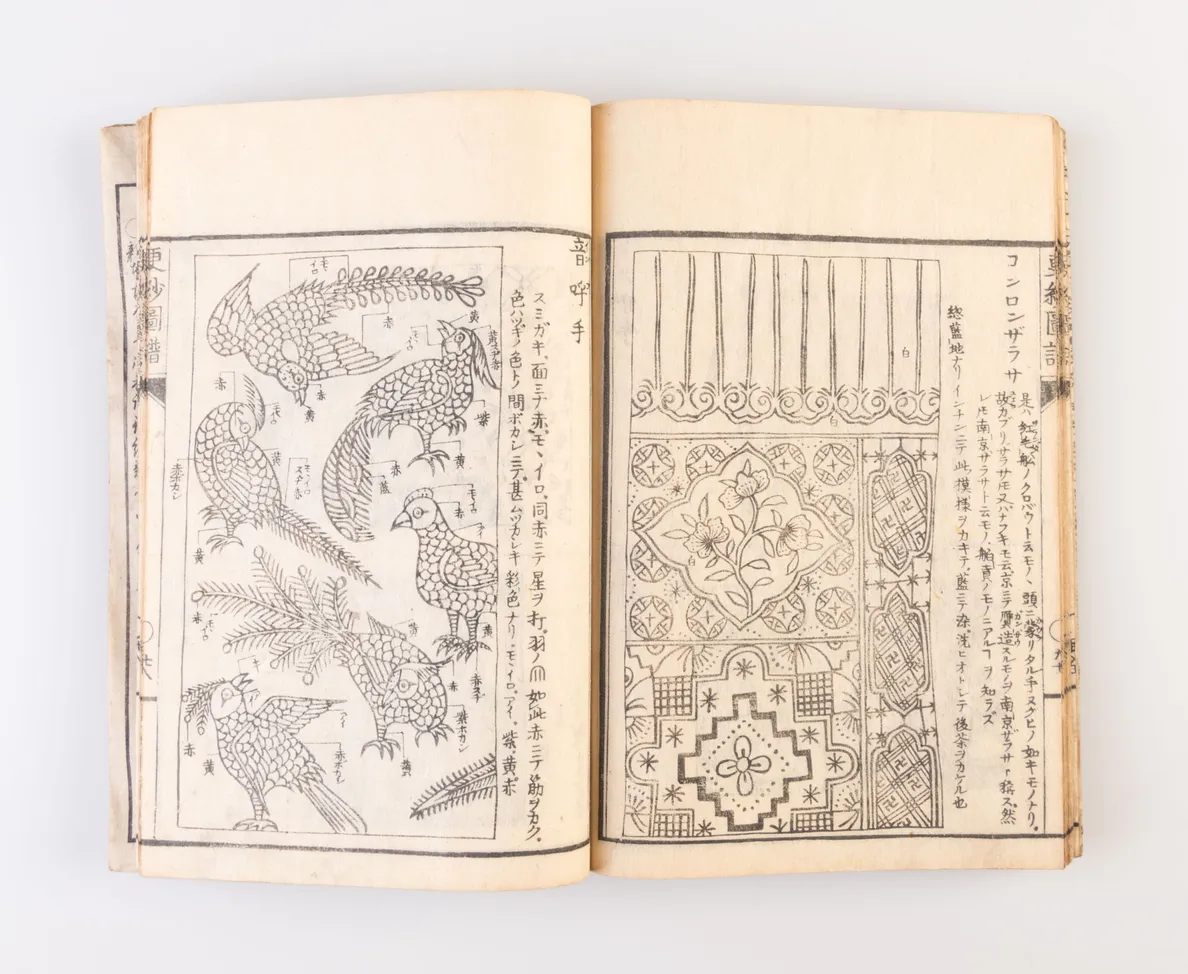 コンロンザラサ
是ハ紅毛舩ノクロバウト云モノヽ頭ニ蒙リタル手ヌグヒノ如キモノナリ。
故カブリサラサ又ハナフキモ云京ニテ贋造スルモノヲ南京ザラサト稱ス。然
レ𪜈南京サラサト云モノ、舶賣ノモノニアルヿヲ知ラズ
総藍地ナリ インチンニテ此模様ヲカキテ。藍ニテ染。洗ヒオトシテ後茶ヲカケル也
白
白
白
音呼手
スミガキ、面ミナ赤、モヽイロ。同赤ニテ星ヲ打。羽ノ如此赤ニテ筋ヲカク。
色ハツギノ色ト間ボカシニテ甚ムツカシキ彩色ナリ。モヽイロ。アイ。紫。黄赤
モヽイロ
赤
モヽイロ
黄
紫
赤
黄
赤
モヽイロ
黄
赤
藍
黄
モヽイロ
赤
アイ
黄
黄
赤
モヽイロ
黄
赤
紫ボカシ
黄
キ
アイ
赤
黄
赤ボカシ
更紗圖譜
更紗圖譜